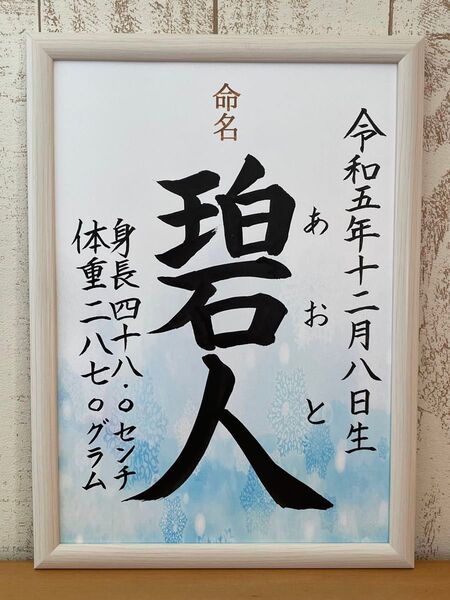 令和五年十二月八日生
命名
碧人
あおと
身長四十八.〇センチ
体重二八七〇グラム